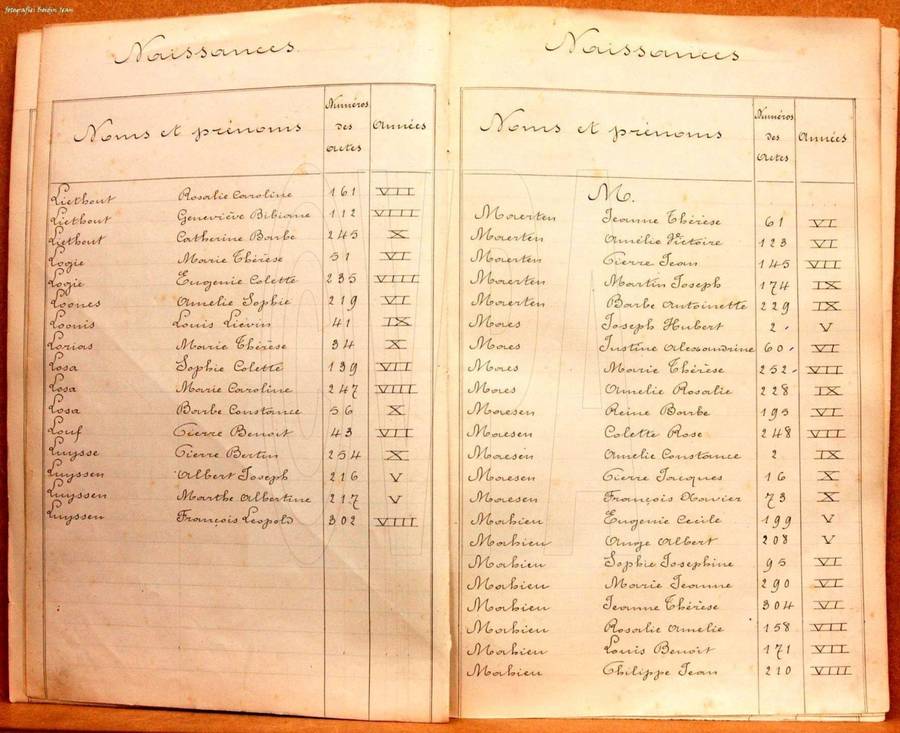 fotografie: Beidin Jean
Naissances
Noms et prénoms Numéros des Actes Années
Liethout Rosalie Caroline 161 VII
Liethout Geneviève Bibiane 112 VIII
Liethout Catherine Barbe 245 X
Logie Marie Thérèse 51 VI
Logie Eugenie Colette 235 VIII
Loones Amelie Sophie 219 VI
Loonis Louis Liévin 41 IX
Lorias Marie Thérèse 34 X
Losa Sophie Colette 139 VII
Losa Marie Caroline 247 VIII
Losa Barbe Constance 56 X
Louf Pierre Benoit 43 VII
Luysse Pierre Bertin 254 X
Luyssen Albert Joseph 216 V
Luyssen Marthe Albertine 217 V
Luyssen François Leopold 302 VIII
Naissances
Noms et prénoms Numéros des Actes Années
M.
Maerten Jeanne Thérèse 61 VI
Maerten Amélie Victoire 123 VI
Maerten Pierre Jean 145 VII
Maerten Martin Joseph 174 IX
Maerten Barbe Antoinette 229 IX
Maes Joseph Hubert 2 V
Maes Justine Alexandrine 60 VI
Maes Marie Thérèse 252 VII
Maes Amelie Rosalie 228 IX
Maesen Reine Barbe 193 VI
Maesen Colette Rose 248 VII
Maesen Amelie Constance 2 IX
Maesen Pierre Jacques 16 X
Maesen François Xavier 73 X
Mahieu Eugenie Cecile 199 V
Mahieu Ange Albert 208 V
Mahieu Sophie Josephine 95 VI
Mahieu Marie Jeanne 290 VI
Mahieu Jeanne Thérèse 304 VI
Mahieu Rosalie Amelie 158 VII
Mahieu Louis Benoit 171 VII
Mahieu Philippe Jean 210 VIII